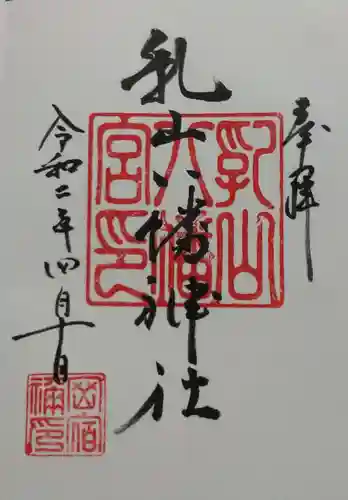 奉拝
乳山八幡神社
令和二年四月十日
乳山八幡宮印